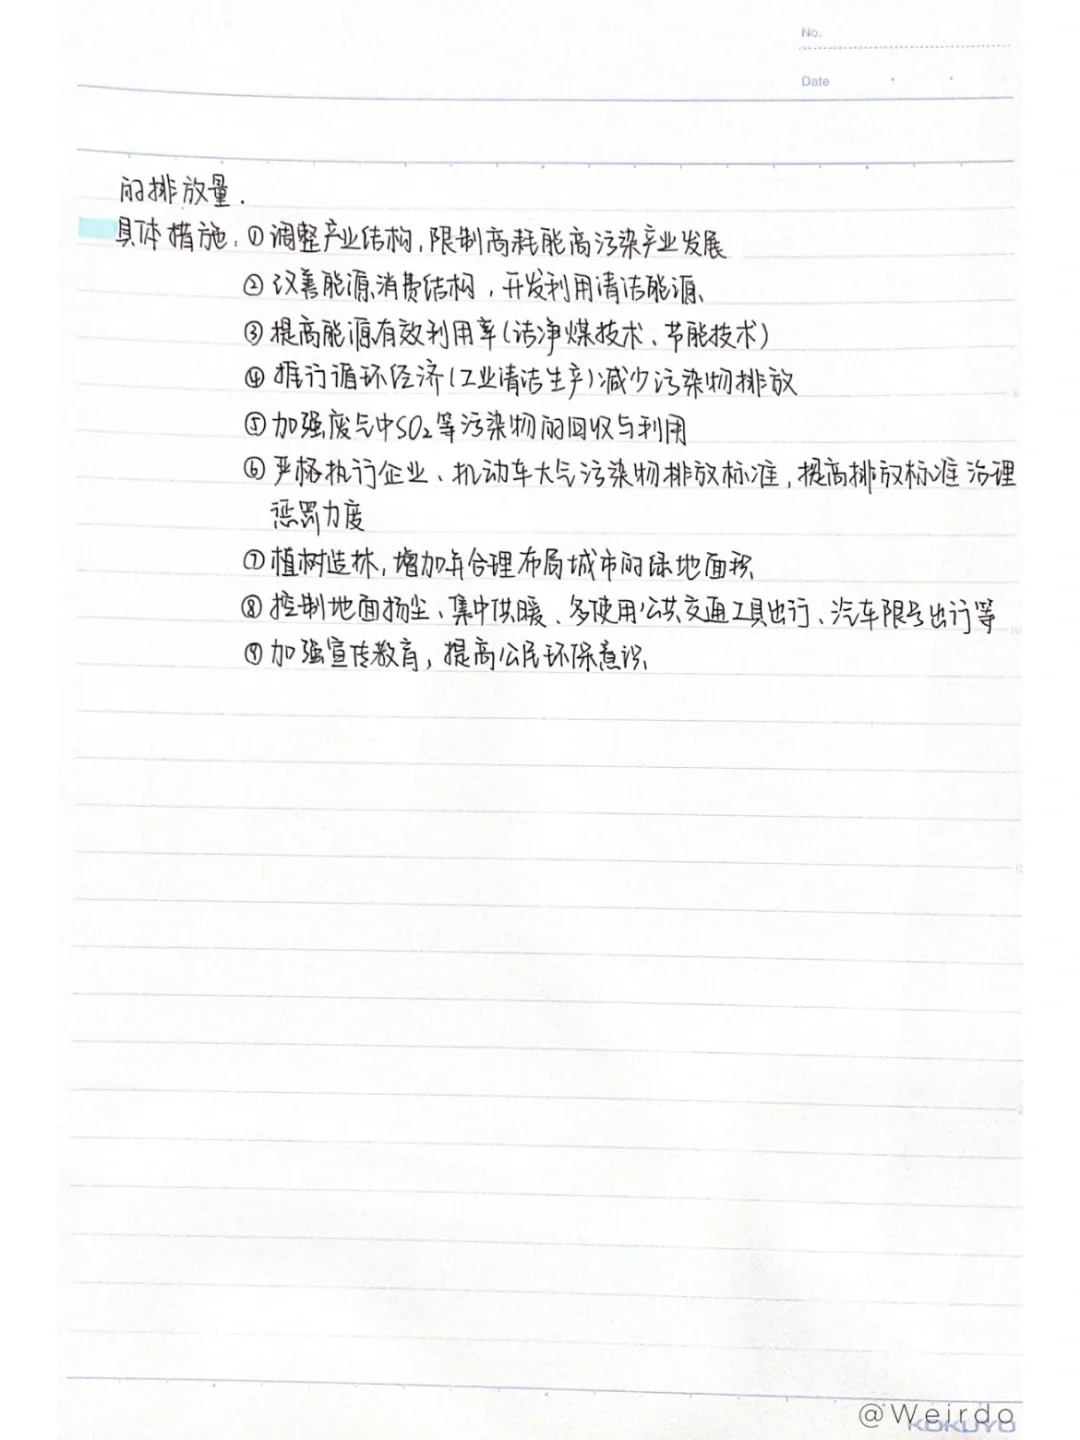 No.
Date
的排放量.
具体措施:①调整产业结构,限制高耗能高污染产业发展
②改善能源消费结构,开发利用清洁能源、
③提高能源有效利用率(洁净煤技术、节能技术)
④推行循环经济(工业清洁生产)减少污染物排放
⑤加强废气中SO₂等污染物的回收与利用
⑥严格执行企业、机动车大气污染物排放标准,提高排放标准治理
惩罚力度
⑦植树造林,增加并合理布局城市的绿地面积
⑧控制地面扬尘、集中供暖、多使用公共交通工具出行、汽车限号出行等
⑨加强宣传教育,提高公民环保意识、
@Weirdo
KOKUYO